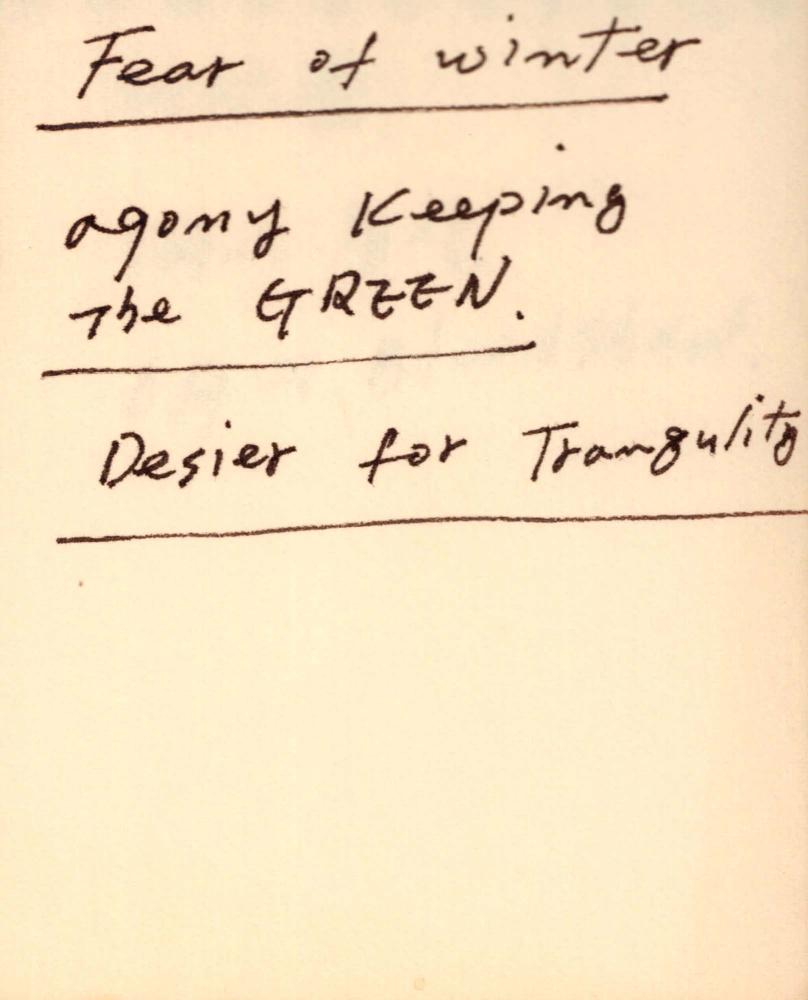 Fear of winter
agony Keeping
The GREEN.
Desier for Tranqulity